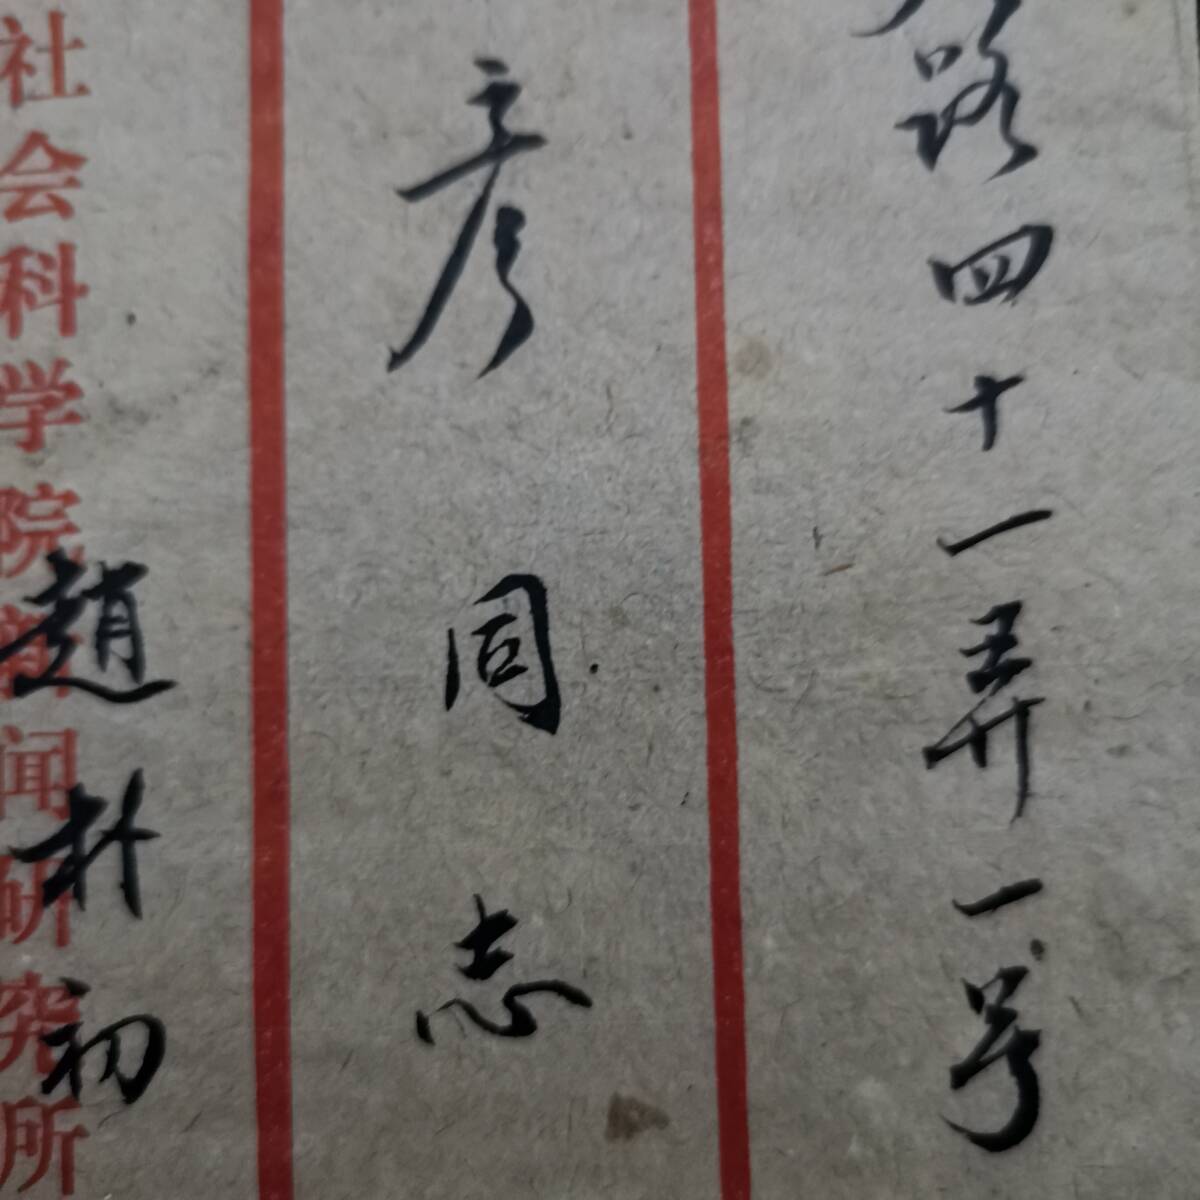 路四十一弄一号
彦同志
趙朴初
社会科学院新闻研究所